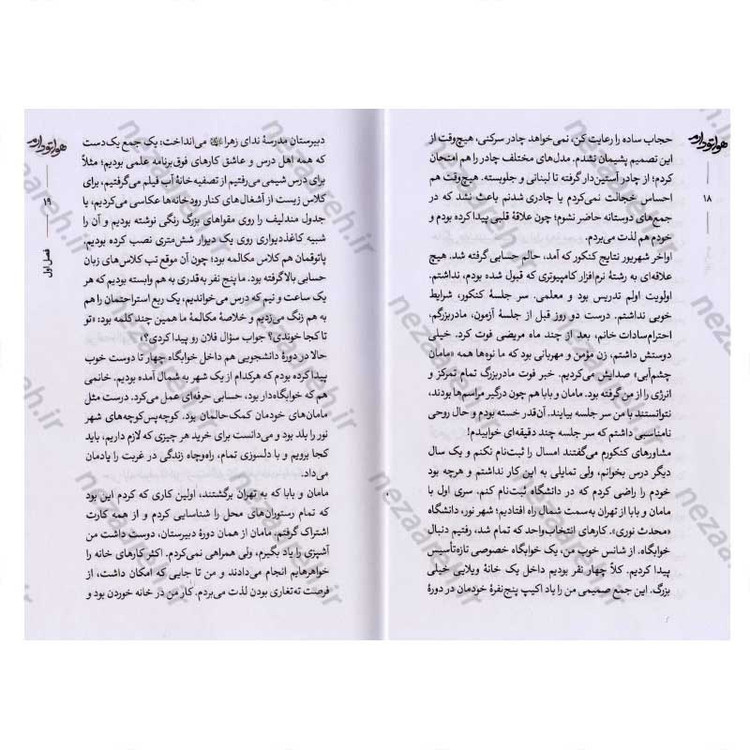 هواتو دارم
۱۸
حجاب ساده را رعایت کن، نمی‌خواهد چادر سرکنی، هیچ‌وقت از
این تصمیم پشیمان نشدم. مدل‌های مختلف چادر را هم امتحان
کردم؛ از چادر آستین‌دار گرفته تا لبنانی و جلوبسته. هیچ‌وقت هم
احساس خجالت نمی‌کردم یا چادری شدنم باعث نشد که در
جمع‌های دوستانه حاضر نشوم؛ چون علاقهٔ قلبی پیدا کرده بودم و
خودم هم لذت می‌بردم.
اواخر شهریور نتایج کنکور که آمد، حالم حسابی گرفته شد. هیچ
علاقه‌ای به رشتهٔ نرم‌افزار کامپیوتری که قبول شده بودم، نداشتم.
اولویت اولم تدریس بود و معلمی. سر جلسهٔ کنکور، شرایط
خوبی نداشتم. درست دو روز قبل از جلسهٔ آزمون، مادربزرگم،
احترام‌سادات خانم، بعد از چند ماه مریضی فوت کرد. خیلی
دوستش داشتم، زن مؤمن و مهربانی بود که ما نوه‌ها همه «مامان
چشم‌آبی» صدایش می‌کردیم. خبر فوت مادربزرگ تمام تمرکز و
انرژی را از من گرفته بود. مامان و بابا هم چون درگیر مراسم‌ها بودند،
نتوانستند با من سر جلسه بیایند. آن‌قدر خسته بودم و حال روحی
نامناسبی داشتم که سر جلسه چند دقیقه‌ای خوابیدم!
مشاورهای کنکورم می‌گفتند امسال را ثبت‌نام نکنم و یک سال
دیگر درس بخوانم، ولی تمایلی به این کار نداشتم و هرچه بود
خودم را راضی کردم که در دانشگاه ثبت‌نام کنم. سری اول با
مامان و بابا از تهران به‌سمت شمال راه افتادیم؛ شهر نور، دانشگاه
«محدث نوری». کارهای انتخاب‌واحد که تمام شد، رفتیم دنبال
خوابگاه. از شانس خوب من، یک خوابگاه خصوصی تازه‌تأسیس
پیدا کردیم. کلاً چهار نفر بودیم داخل یک خانهٔ ویلایی خیلی
بزرگ. این جمع صمیمی من را یاد اکیپ پنج‌نفرهٔ خودمان در دورهٔ
هواتو دارم
۱۹
فصل اول
دبیرستان مدرسهٔ ندای زهرا می‌انداخت؛ یک جمع یک‌دست
که همه اهل درس و عاشق کارهای فوق‌برنامه علمی بودیم؛ مثلاً
برای درس شیمی می‌رفتیم از تصفیه خانهٔ آب فیلم می‌گرفتیم، برای
کلاس زیست از آشغال‌های کنار رودخانه‌ها عکاسی می‌کردیم، یا
جدول مندلیف را روی مقواهای بزرگ رنگی نوشته بودیم و آن را
شبیه کاغذدیواری روی یک دیوار شش‌متری نصب کرده بودیم.
پاتوقمان هم کلاس مکالمه بود؛ چون آن موقع تب کلاس‌های زبان
حسابی بالا گرفته بود. ما پنج نفر به‌قدری به هم وابسته بودیم که هر
یک ساعت و نیم که درس می‌خواندیم، یک ربع استراحتمان را
به هم زنگ می‌زدیم و خلاصهٔ مکالمهٔ ما همین چند کلمه بود: «تو
تا کجا خوندی؟ جواب سؤال فلان رو پیدا کردی؟»
حالا در دورهٔ دانشجویی هم داخل خوابگاه چهار تا دوست خوب
پیدا کرده بودم که هرکدام از یک شهر به شمال آمده بودیم. خانمی
هم که خوابگاه‌دار بود، حسابی حرفه‌ای عمل می‌کرد. درست مثل
مامان‌های خودمان کمک حالمان بود. کوچه‌پس‌کوچه‌های شهر
نور را بلد بود و می‌دانست برای خرید هر چیزی که لازم داریم، باید
کجا برویم و با دلسوزی تمام، راه‌وچاه زندگی در غربت را یادمان
می‌داد.
مامان و بابا که به تهران برگشتند، اولین کاری که کردم این بود
که تمام رستوران‌های محل را شناسایی کردم و از همه کارت
اشتراک گرفتم. مامان از همان دورهٔ دبیرستان، دوست داشت من
آشپزی را یاد بگیرم، ولی همراهی نمی‌کردم. اکثر کارهای خانه را
خواهرهایم انجام می‌دادند و من تا جایی که امکان داشت، از
فرصت ته‌تغاری بودن لذت می‌بردم. کار من در خانه خوردن بود و
nezaareh.ir